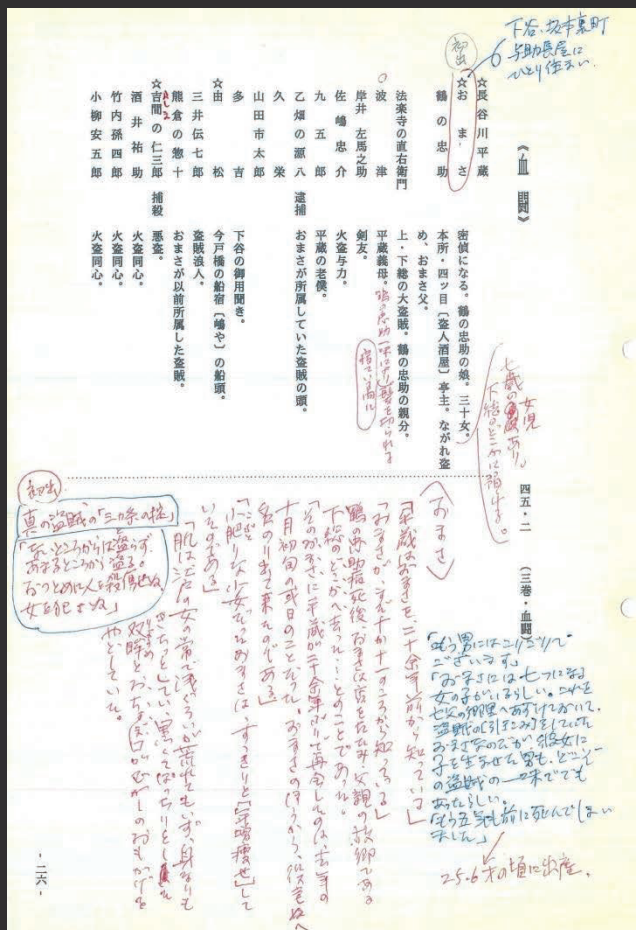 《血闘》
四五・二
(三巻・血闘)
☆長谷川平蔵
☆おまさ
密偵になる。鶴の忠助の娘。三十女。
鶴の忠助
本所・四ツ目〔盗人酒屋〕亭主。ながれ盗
め、おまさ父。
法楽寺の直右衛門
上・下総の大盗賊。鶴の忠助の親分。
波津
平蔵義母。
岸井左馬之助
剣友。
佐嶋忠介
火盗与力。
九五郎
平蔵の老僕。
乙畑の源八 逮捕
おまさが所属していた盗賊の頭。
久栄
山田市太郎
多吉
下谷の御用聞き。
☆由松
今戸橋の船宿〔嶋や〕の船頭。
三井伝七郎
盗賊浪人。
熊倉の惣十
おまさが以前所属した盗賊。
☆吉間の仁三郎 捕殺
悪盗。
酒井祐助
火盗同心。
竹内孫四郎
火盗同心。
小柳安五郎
火盗同心。
初出
下谷、坂本裏町
与助長屋に
ひとり住まい.
七歳の
女児
あり。
〈おまさ〉
「平蔵はおまさを、二十余年前から知っている」
「おまさが、まだ十か十一のころから知っている」
鶴の忠助病死後、おまさは店をたたみ、父親の故郷である
下総のどこかへ去った……とのことであった。
「そのおまさに平蔵が二十余年ぶりで再会したのは、去年の
十月初旬の或日のことだった。おまさのほうから、役宅へ
名のり出て来たのである」
「小肥りな少女だったおまさは、すっきりと〔年増痩せ〕して
いたのである」
「肌は江戸の女の常で浅ぐろいが荒れてもいず。身なりも
きちっとしていて、黒いぱっちりとした
双眸と、おちょぼ口がむかしのおもかげを
やどしていた。
初出
真の盗賊の「三カ条の掟」
「貧しいところからは盗らず、
あるところから盗る。
おつとめに人を殺傷せぬ
女を犯さぬ」
「もう男にはこりごりで
ございます」
「おまさには七つになる
女の子がいるらしい。これを
亡父の郷里へあずけておいて、
盗賊の〔引きこみ〕をしていた
おまさなのだが、彼女に
子を生ませた男も、どこぞ
の盗賊の一味ででも
あったらしい。
「もう五年も前に死んでしまい
ました」
25.6才の頃に出産.
- 二六 -